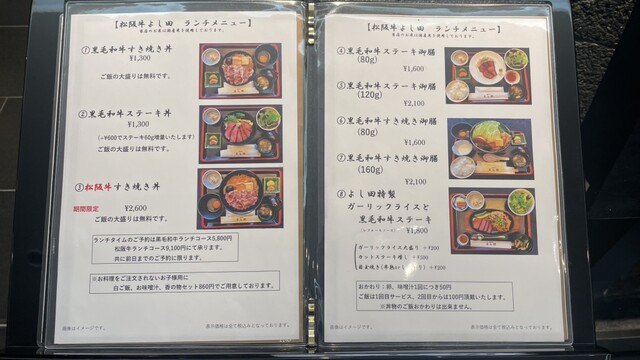 【松阪牛よし田　ランチメニュー】
①黒毛和牛すき焼き丼
¥1,300
ご飯の大盛りは無料です。
②黒毛和牛ステーキ丼
¥1,300
(+¥600でステーキ60g増量いたします)
ご飯の大盛りは無料です。
③松阪牛すき焼き丼
期間限定　¥2,600
ご飯の大盛りは無料です。
ランチタイムのご予約は黒毛和牛ランチコース5,800円
松阪牛ランチコース9,100円にて承ります。
共に前日までのご予約に限ります。
※お料理をご注文されないお子様用に
白ご飯、お味噌汁、香の物セット860円でご用意しております。
画像はイメージです。　表示価格は全て税込みとなっております。
【松阪牛よし田　ランチメニュー】
④黒毛和牛ステーキ御膳
(80g)
¥1,600
⑤黒毛和牛ステーキ御膳
(120g)
¥2,100
⑥黒毛和牛すき焼き御膳
(80g)
¥1,600
⑦黒毛和牛すき焼き御膳
(160g)
¥2,100
⑧よし田特製
ガーリックライスと
黒毛和牛ステーキ
¥1,800
ガーリックライス大盛り +¥200
カットステーキ増し +¥500
+¥200
おかわり：卵、味噌汁1回につき50円
ご飯は1回目サービス、2回目からは100円頂戴いたします。
※丼物のご飯おかわりは出来ません。
画像はイメージです。　表示価格は全て税込みとなっております。